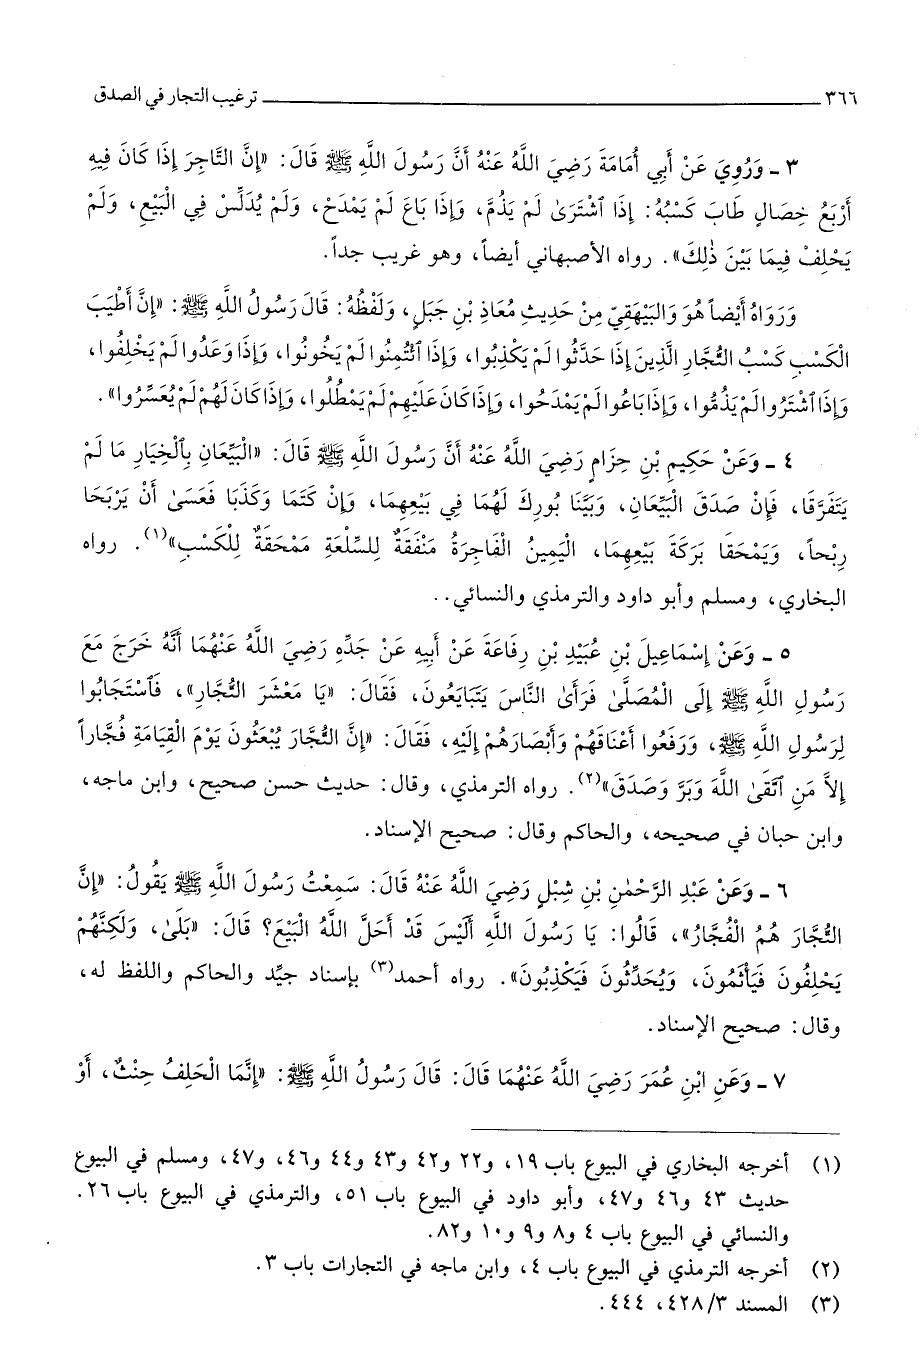 ٣٦٦ ترغيب التجار في الصدق
٣ ـ وَرُوِيَ عَنْ أَبِي أُمَامَةَ رَضِيَ اللَّهُ عَنْهُ أَنَّ رَسُولَ اللَّهِ ﷺ قَالَ: «إِنَّ التَّاجِرَ إِذَا كَانَ فِيهِ
أَرْبَعُ خِصَالٍ طَابَ كَسْبُهُ: إِذَا ٱشْتَرَىٰ لَمْ يَذُمَّ، وَإِذَا بَاعَ لَمْ يَمْدَحْ، وَلَمْ يُدَلِّسْ فِي الْبَيْعِ، وَلَمْ
يَحْلِفْ فِيمَا بَيْنَ ذٰلِكَ». رواه الأصبهاني أيضاً، وهو غريب جداً.
وَرَوَاهُ أَيْضاً هُوَ وَالبَيْهَقِيّ مِنْ حَدِيثِ مُعَاذِ بْنِ جَبَلٍ، وَلَفْظُهُ: قَالَ رَسُولُ اللَّهِ ﷺ: «إِنَّ أَطْيَبَ
الْكَسْبِ كَسْبُ التُّجَّارِ الَّذِينَ إِذَا حَدَّثُوا لَمْ يَكْذِبُوا، وَإِذَا ٱئْتُمِنُوا لَمْ يَخُونُوا، وَإِذَا وَعَدُوا لَمْ يَخْلِفُوا،
وَإِذَا ٱشْتَرُوا لَمْ يَذُمُّوا، وَإِذَا بَاعُوا لَمْ يَمْدَحُوا، وَإِذَا كَانَ عَلَيْهِمْ لَمْ يَمْطُلُوا، وَإِذَا كَانَ لَهُمْ لَمْ يُعَسِّرُوا».
٤ ـ وَعَنْ حَكِيمِ بْنِ حِزَامٍ رَضِيَ اللَّهُ عَنْهُ أَنَّ رَسُولَ اللَّهِ ﷺ قَالَ: «الْبَيِّعَانِ بِٱلْخِيَارِ مَا لَمْ
يَتَفَرَّقَا، فَإِنْ صَدَقَ الْبَيِّعَانِ، وَبَيَّنَا بُورِكَ لَهُمَا فِي بَيْعِهِمَا، وَإِنْ كَتَمَا وَكَذَبَا فَعَسَىٰ أَنْ يَرْبَحَا
رِبْحاً، وَيَمْحَقَا بَرَكَةَ بَيْعِهِمَا، الْيَمِينُ الْفَاجِرَةُ مَنْفَقَةٌ لِلسِّلْعَةِ مَمْحَقَةٌ لِلْكَسْبِ»(١). رواه
البخاري، ومسلم وأبو داود والترمذي والنسائي..
٥ ـ وَعَنْ إِسْمَاعِيلَ بْنِ عُبَيْدِ بْنِ رِفَاعَةَ عَنْ أَبِيهِ عَنْ جَدِّهِ رَضِيَ اللَّهُ عَنْهُمَا أَنَّهُ خَرَجَ مَعَ
رَسُولِ اللَّهِ ﷺ إِلَى الْمُصَلَّىٰ فَرَأَىٰ النَّاسَ يَتَبَايَعُونَ، فَقَالَ: «يَا مَعْشَرَ التُّجَّارِ»، فَٱسْتَجَابُوا
لِرَسُولِ اللَّهِ ﷺ، وَرَفَعُوا أَعْنَاقَهُمْ وَأَبْصَارَهُمْ إِلَيْهِ، فَقَالَ: «إِنَّ التُّجَّارَ يُبْعَثُونَ يَوْمَ الْقِيَامَةِ فُجَّاراً
إِلاَّ مَنِ ٱتَّقَىٰ اللَّهَ وَبَرَّ وَصَدَقَ»(٢). رواه الترمذي، وقال: حديث حسن صحيح، وابن ماجه،
وابن حبان في صحيحه، والحاكم وقال: صحيح الإسناد.
٦ ـ وَعَنْ عَبْدِ الرَّحْمٰنِ بْنِ شِبْلٍ رَضِيَ اللَّهُ عَنْهُ قَالَ: سَمِعْتُ رَسُولَ اللَّهِ ﷺ يَقُولُ: «إِنَّ
التُّجَّارَ هُمُ الْفُجَّارُ»، قَالُوا: يَا رَسُولَ اللَّهِ أَلَيْسَ قَدْ أَحَلَّ اللَّهُ الْبَيْعَ؟ قَالَ: «بَلَىٰ، وَلَكِنَّهُمْ
يَحْلِفُونَ فَيَأْثَمُونَ، وَيُحَدِّثُونَ فَيَكْذِبُونَ». رواه أحمد(٣) بإسناد جيِّد والحاكم واللفظ له،
وقال: صحيح الإسناد.
٧ ـ وَعَنِ ابْنِ عُمَرَ رَضِيَ اللَّهُ عَنْهُمَا قَالَ: قَالَ رَسُولُ اللَّهِ ﷺ: «إِنَّمَا الْحَلِفُ حِنْثٌ، أَوْ
(١) أخرجه البخاري في البيوع باب ١٩، و٢٢ و٤٢ و٤٣ و٤٤ و٤٦، و٤٧، ومسلم في البيوع
حديث ٤٣ و٤٦ و٤٧، وأبو داود في البيوع باب ٥١، والترمذي في البيوع باب ٢٦.
والنسائي في البيوع باب ٤ و٨ و٩ و١٠ و٨٢.
(٢) أخرجه الترمذي في البيوع باب ٤، وابن ماجه في التجارات باب ٣.
(٣) المسند ٤٢٨/٣، ٤٤٤.